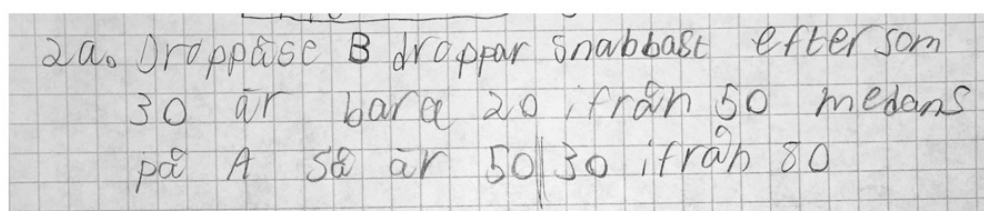 2a. Droppåse B droppar snabbast eftersom
30 är bara 20 ifrån 50 medans
på A så är 50 30 ifrån 80